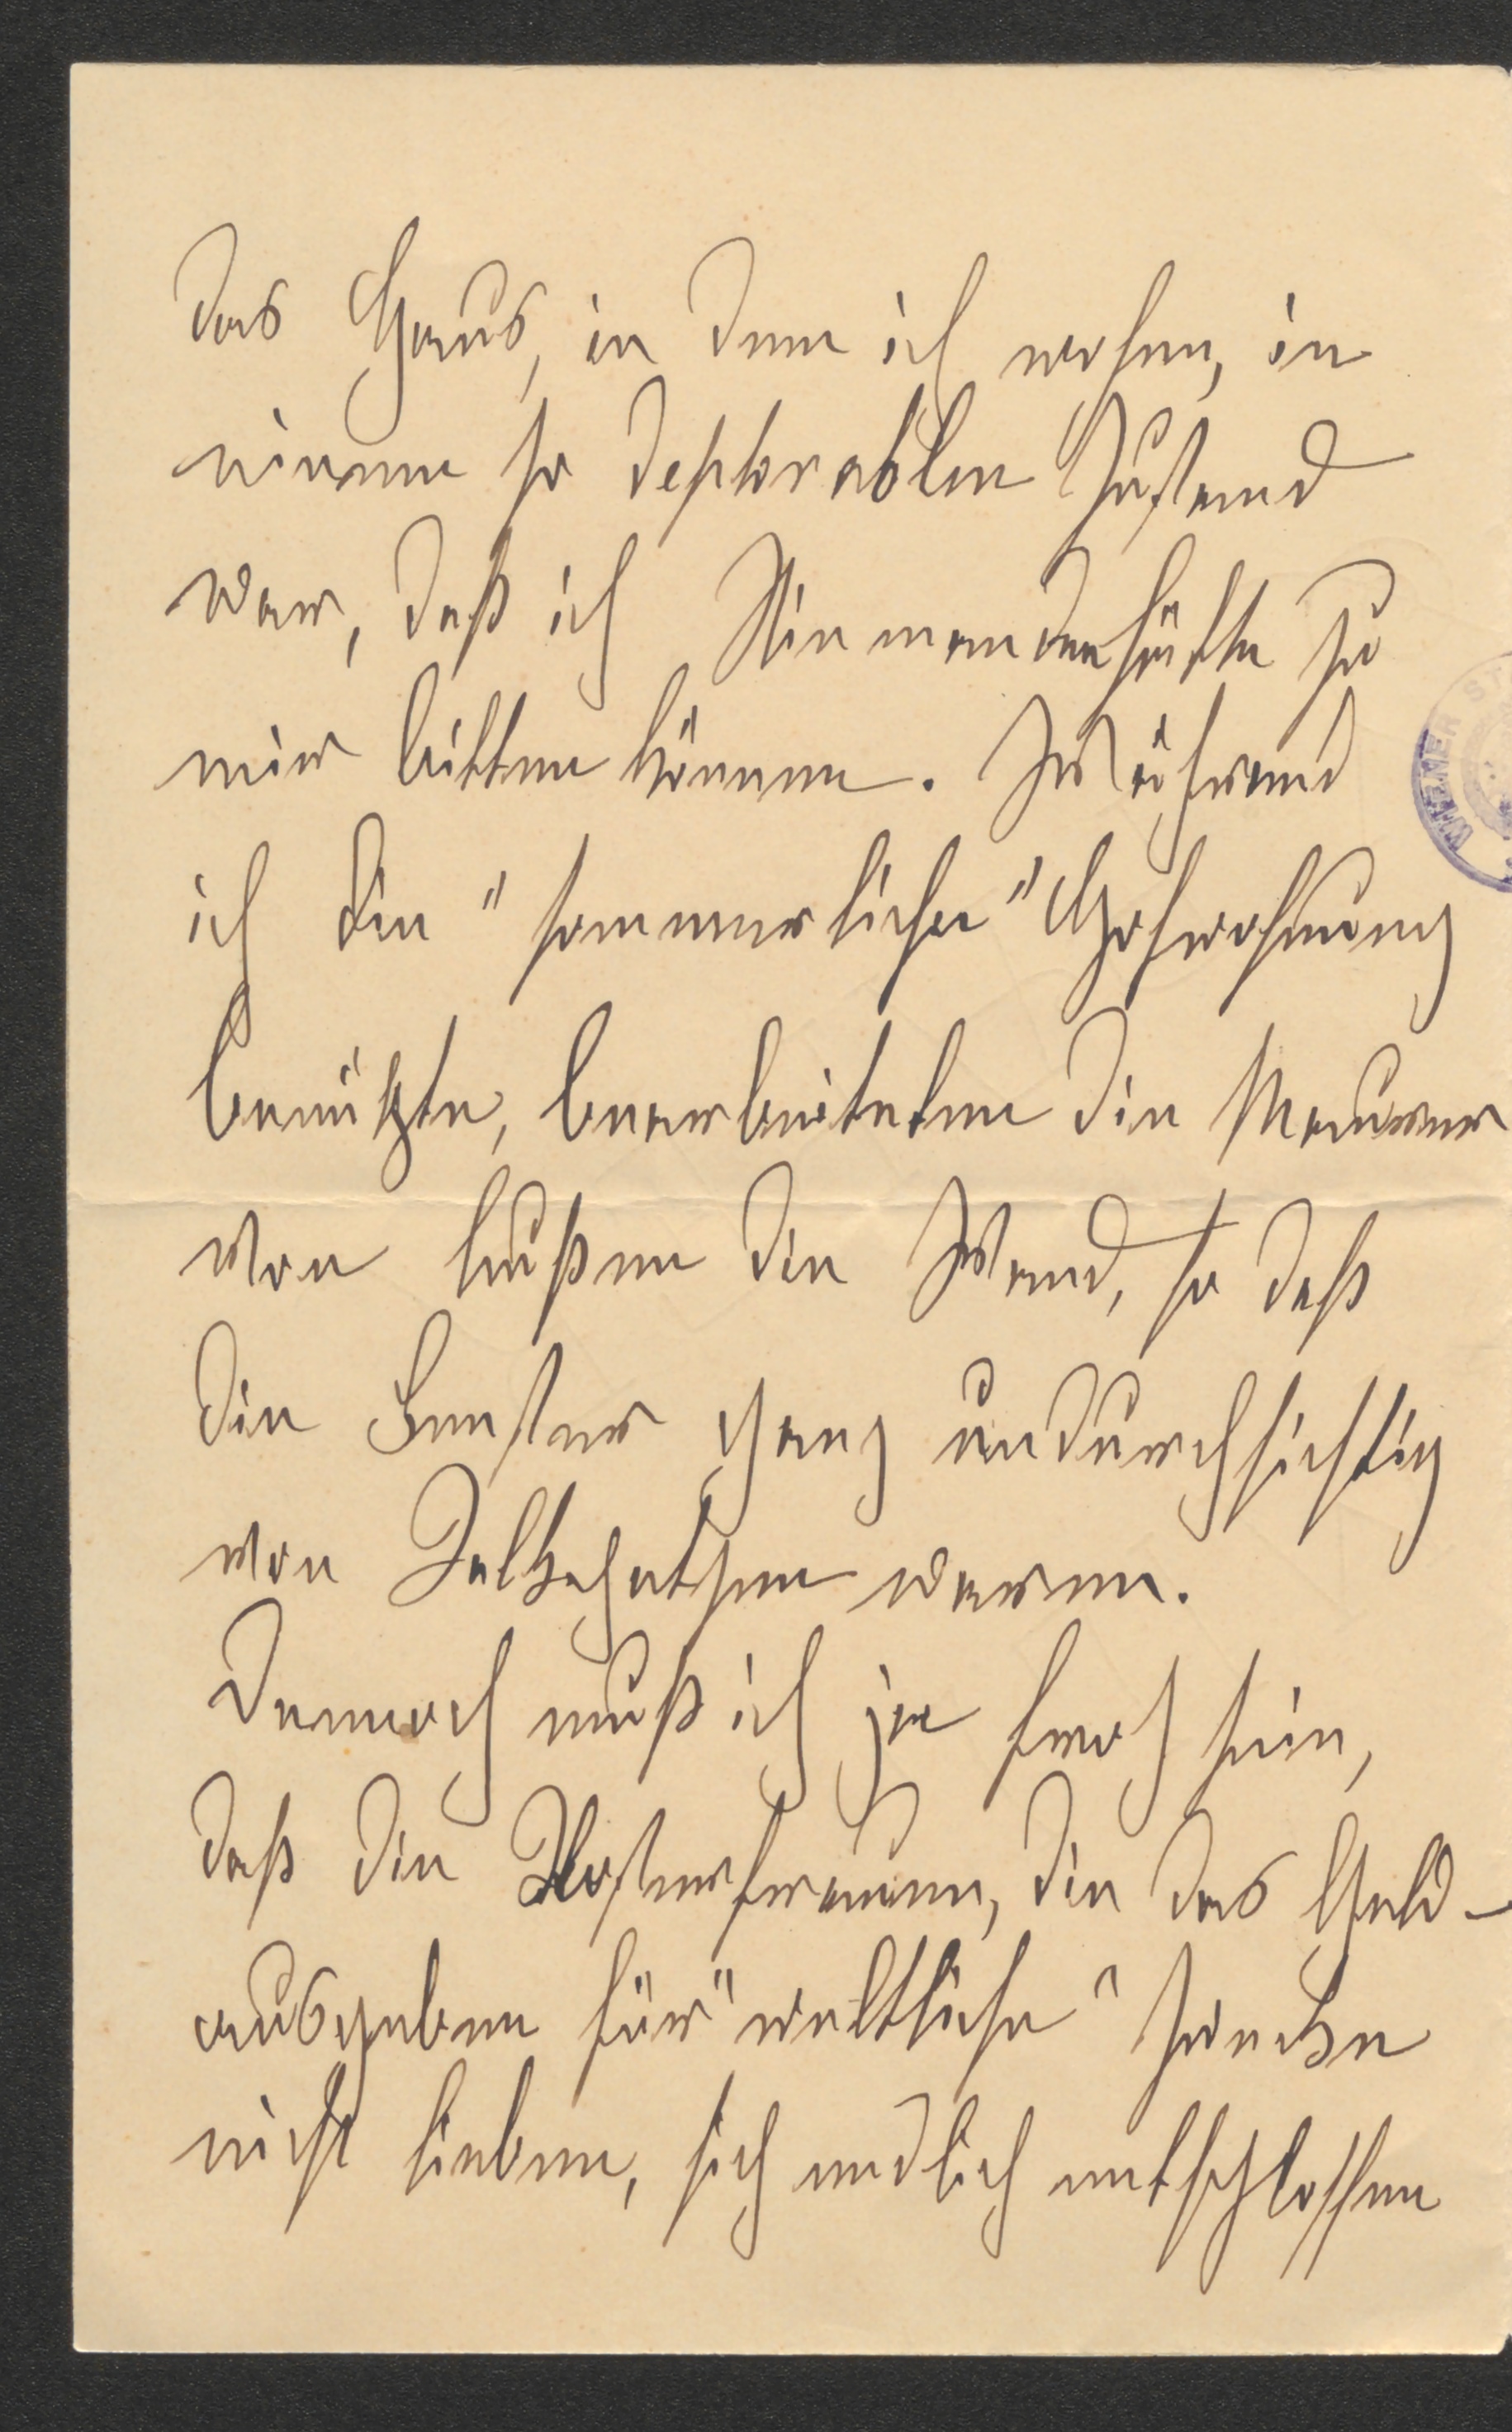 das Haus, in dem ich wohne, in
einem so deplorablen Zustand
war, daß ich Niemanden hätte zu
mir bitten können. Während
ich die "sommerliche" Hofwohnung
benützte, bearbeiteten die Maurer
von außen die Wand, so daß
die Fenster ganz undurchsichtig
von Kalkpatzen waren.
Dennoch muß ich ja froh sein,
daß die Klosterfrauen, die das Geld-
ausgeben für "weltliche" Zwecke
nicht lieben, sich endlich entschlossen
WIENER ST